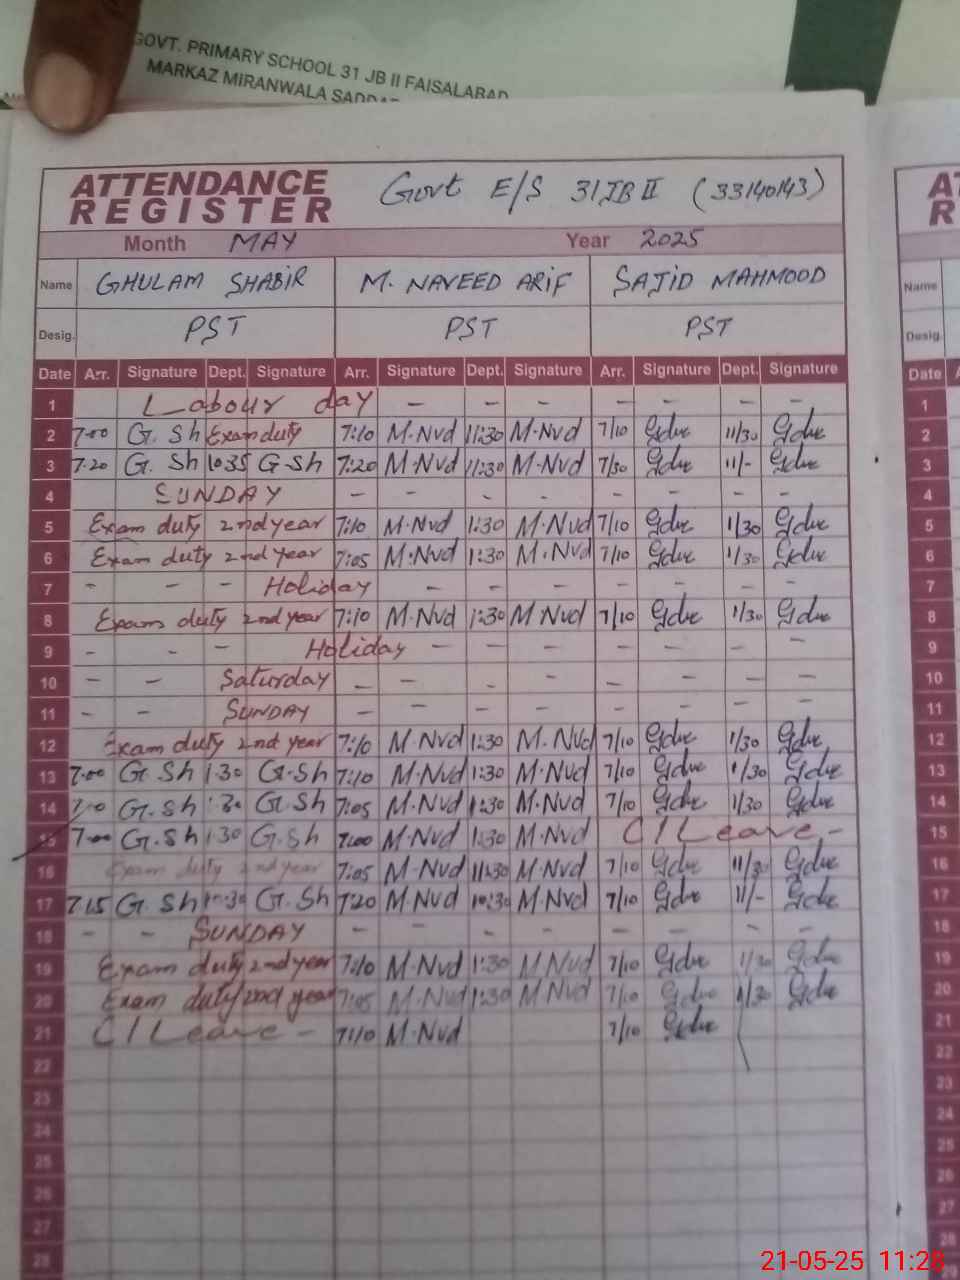 GOVT. PRIMARY SCHOOL 31 JB II FAISALABAD
MARKAZ MIRANWALA SADDAR
ATTENDANCE REGISTER Govt E/S 31JB II (33140143)
Month MAY Year 2025
Name GHULAM SHABIR M. NAVEED ARIF SAJID MAHMOOD Name
Desig. PST PST PST Desig.
Date Arr. Signature Dept. Signature Arr. Signature Dept. Signature Arr. Signature Dept. Signature Date
1 Labour day - - - - - - - 1
2 7-00 G. Sh Exam duty 7:10 M.Nvd 11:30 M.Nvd 7/10 11/30 2
3 7.20 G. Sh 1035 G-Sh 7:20 M.Nvd 11:30 M.Nvd 7/30 11/- 3
4 SUNDAY - - - - - - - - 4
5 Exam duty 2nd year 7:10 M.Nvd 1:30 M.Nvd 7/10 1/30 5
6 Exam duty 2nd year 7:05 M.Nvd 1:30 M.Nvd 7/10 1/30 6
7 - - - Holiday - - - - - - - 7
8 Exam duty 2nd year 7:10 M.Nvd 1:30 M.Nvd 7/10 1/30 8
9 - - - Holiday - - - - - - 9
10 - - Saturday - - - - - - - - 10
11 - - SUNDAY - - - - - - - - 11
12 Exam duty 2nd year 7:10 M.Nvd 1:30 M.Nvd 7/10 1/30 12
13 7.00 G.Sh 1.30 G.Sh 7:10 M.Nvd 1:30 M.Nvd 7/10 1/30 13
14 G.Sh G.Sh 7:05 M.Nvd 1:30 M.Nvd 7/10 1/30 14
15 7-00 G.Sh 1.30 G.Sh 7:00 M.Nvd 1:30 M.Nvd C/Leave - 15
16 Exam duty 2nd year 7:05 M.Nvd 11:30 M.Nvd 7/10 11/30 16
17 7.15 G.Sh G.Sh 7:20 M.Nvd 10:30 M.Nvd 7/10 11/- 17
18 - - SUNDAY - - - - - - - 18
19 Exam duty 2nd year 7:10 M.Nvd 1:30 M.Nvd 7/10 1/30 19
20 Exam duty 2nd year 7:05 M.Nvd 1:30 M.Nvd 7/10 1/30 20
21 C/Leave - 7:10 M.Nvd 7/10 21
22 22
23 23
24 24
25 25
26 26
27 27
28 28
21-05-25 11:28